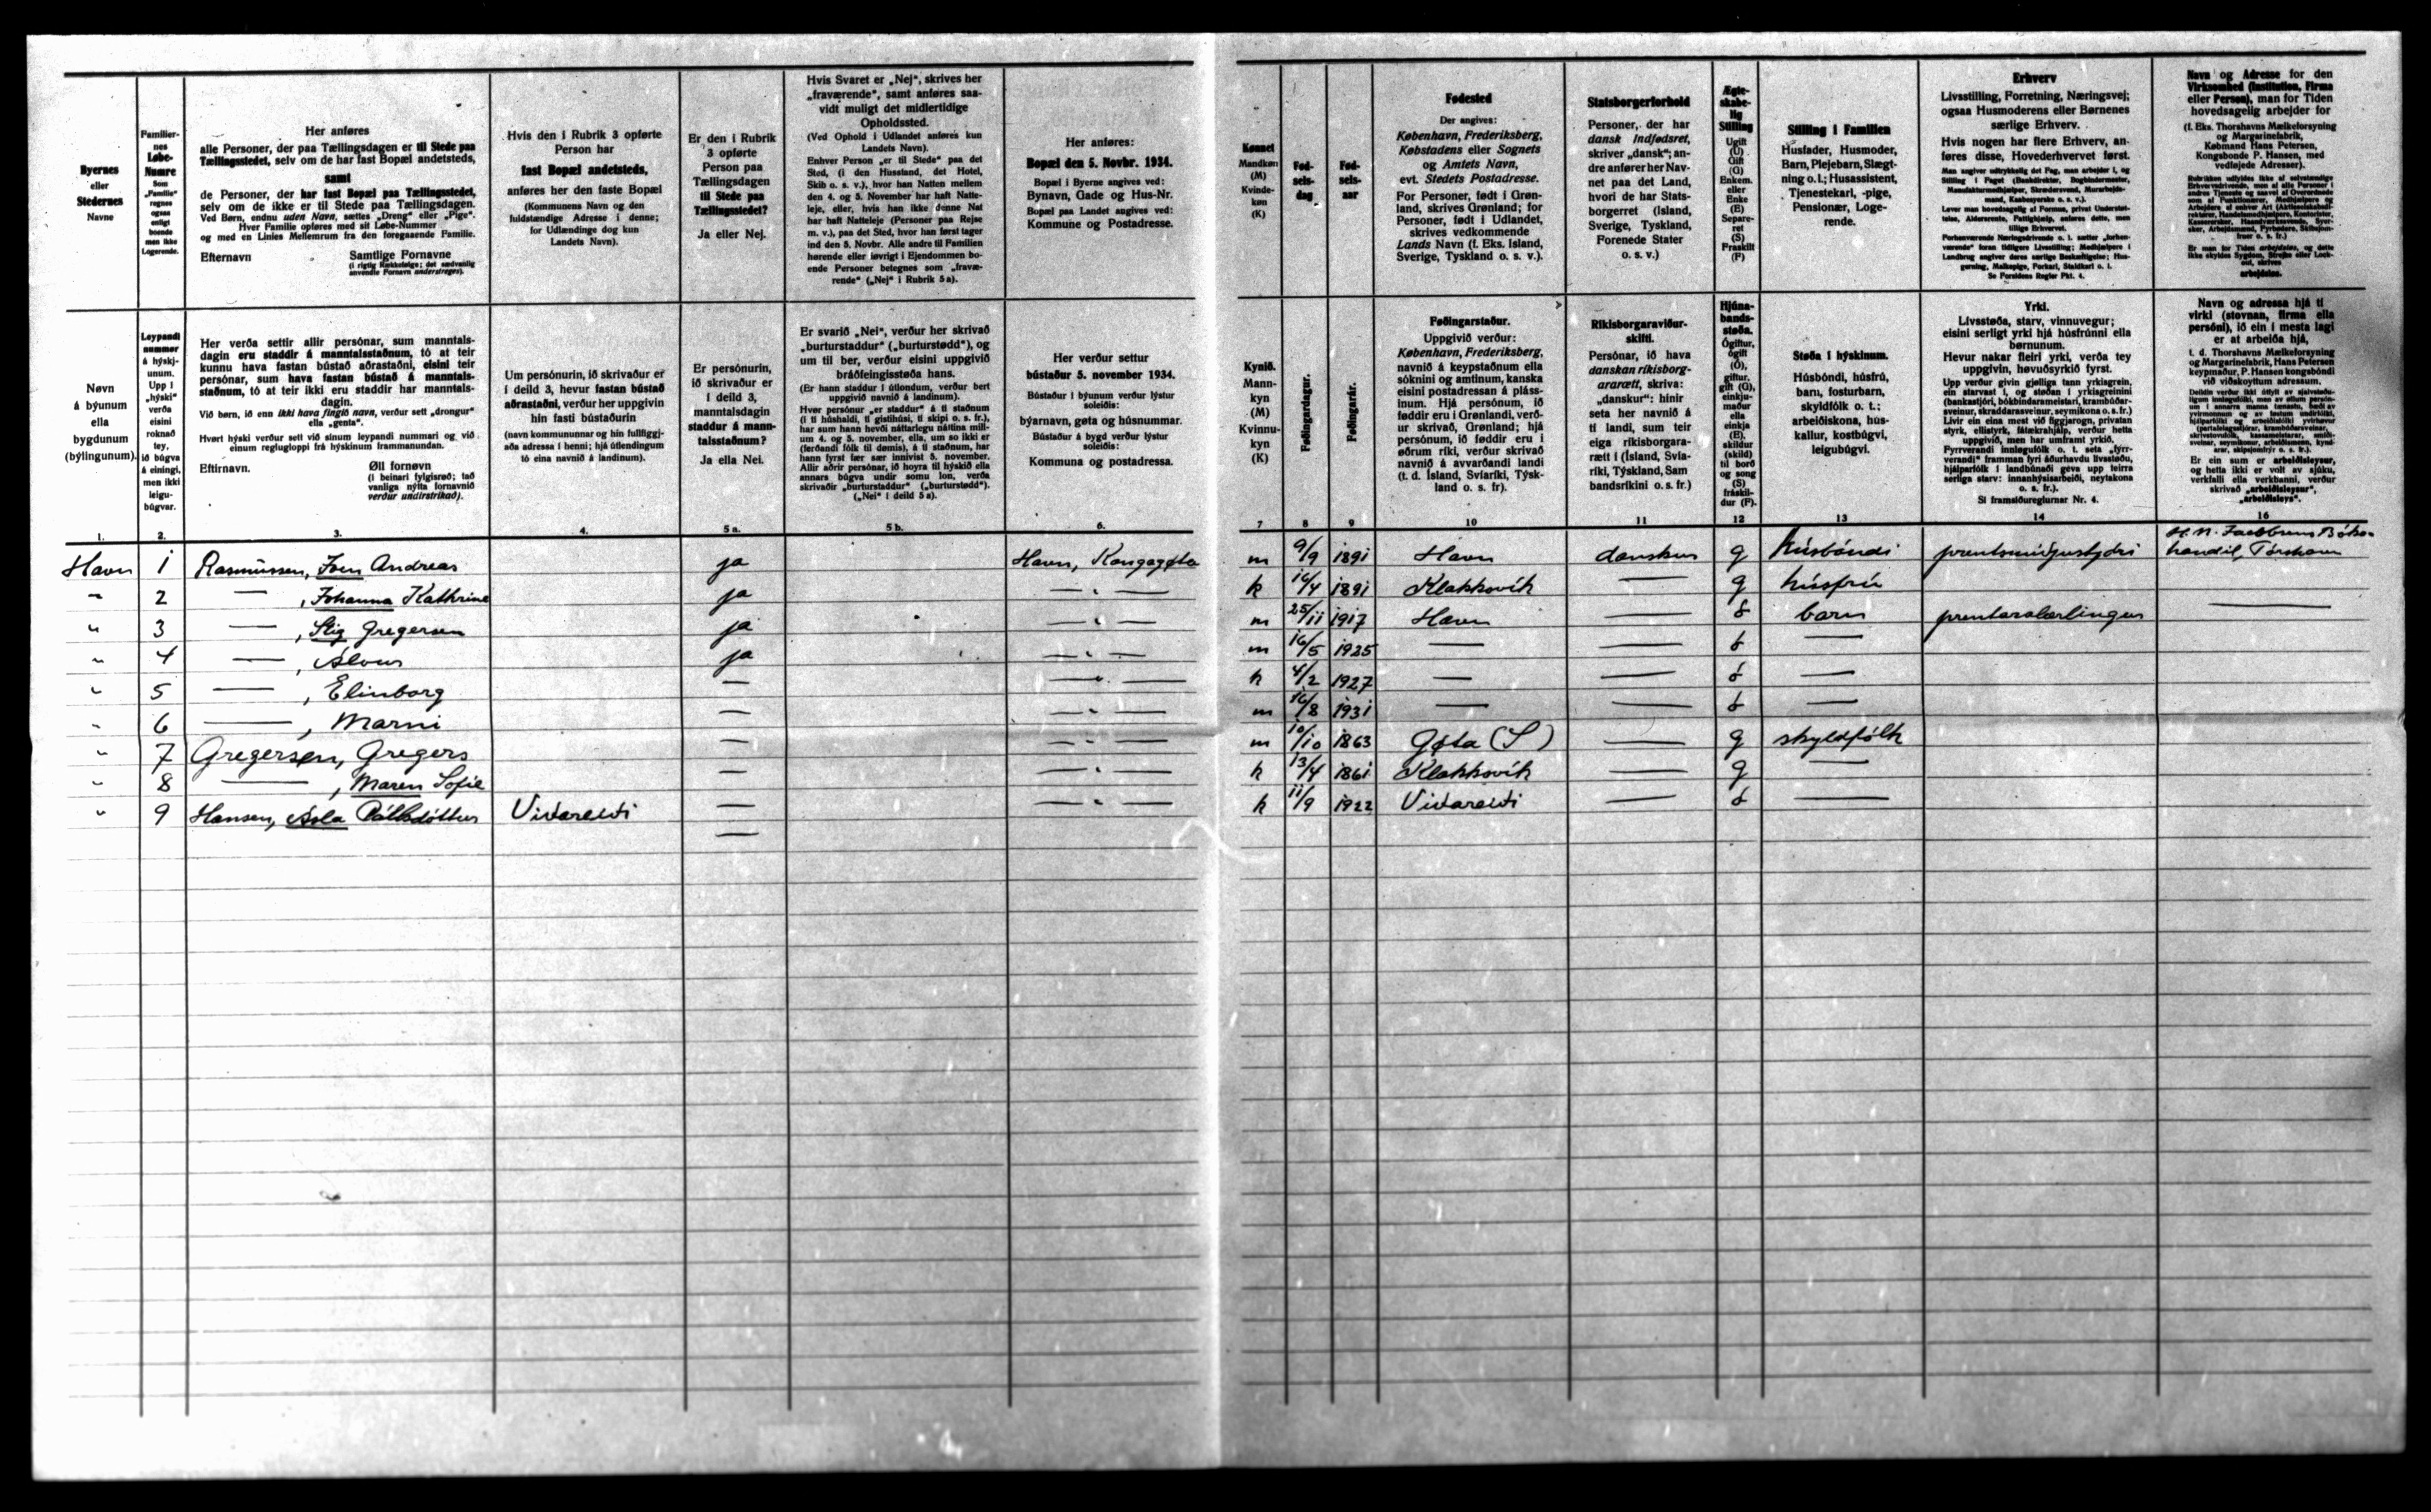 Byernes
eller
Stedernes
Navne
Familier-
nes
Løbe-
Numre
Som
„Familie“
regnes
ogsaa
enligt
boende
men ikke
Logerende.
Her anføres
alle Personer, der paa Tællingsdagen er til Stede paa
Tællingsstedet, selv om de har fast Bopæl andetsteds,
samt
de Personer, der har fast Bopæl paa Tællingsstedet,
selv om de ikke er til Stede paa Tællingsdagen.
Ved Børn, endnu uden Navn, sættes „Dreng“ eller „Pige“.
Hver Familie opføres med sit Løbe-Nummer
og med en Linies Mellemrum fra den foregaaende Familie.
Efternavn Samtlige Fornavne
(i rigtig Rækkefølge; det sædvanlig
anvendte Fornavn understreges).
Hvis den i Rubrik 3 opførte
Person har
fast Bopæl andetsteds,
anføres her den faste Bopæl
(Kommunens Navn og den
fuldstændige Adresse i denne;
for Udlændinge dog kun
Landets Navn).
Er den i Rubrik
3 opførte
Person paa
Tællingsdagen
til Stede paa
Tællingsstedet?
Ja eller Nej.
Hvis Svaret er „Nej“, skrives her
„fraværende“, samt anføres saa-
vidt muligt det midlertidige
Opholdssted.
(Ved Ophold i Udlandet anføres kun
Landets Navn).
Enhver Person „er til Stede“ paa det
Sted, (i den Husstand, det Hotel,
Skib o. s. v.), hvor han Natten mellem
den 4. og 5. November har haft Natte-
leje, eller, hvis han ikke denne Nat
har haft Natteleje (Personer paa Rejse
m. v.), paa det Sted, hvor han først tager
ind den 5. Novbr. Alle andre til Familien
hørende eller iøvrigt i Ejendommen bo-
ende Personer betegnes som „fravæ-
rende“ („Nej“ i Rubrik 5a).
Her anføres:
Bopæl den 5. Novbr. 1934.
Bopæl i Byerne angives ved:
Bynavn, Gade og Hus-Nr.
Bopæl paa Landet angives ved:
Kommune og Postadresse.
Kønnet
Mandkøn
(M)
Kvinde-
køn
(K)
Fød-
sels-
dag
Fød-
sels-
aar
Fødested
Der angives:
København, Frederiksberg,
Købstadens eller Sognets
og Amtets Navn,
evt. Stedets Postadresse.
For Personer, født i Grøn-
land, skrives Grønland; for
Personer, født i Udlandet,
skrives vedkommende
Lands Navn (f. Eks. Island,
Sverige, Tyskland o. s. v.).
Statsborgerforhold
Personer, der har
dansk Indfødsret,
skriver „dansk“; an-
dre anfører her Nav-
net paa det Land,
hvori de har Stats-
borgerret (Island,
Sverige, Tyskland,
Forenede Stater
o. s. v.)
Ægte-
skabe-
lig
Stilling
Ugift
(U)
Gift
(G)
Enkem.
eller
Enke
(E)
Separe-
ret
(S)
Fraskilt
(F)
Stilling i Familien
Husfader, Husmoder,
Barn, Plejebarn, Slægt-
ning o. l.; Husassistent,
Tjenestekarl, -pige,
Pensionær, Loge-
rende.
Erhverv
Livsstilling, Forretning, Næringsvej;
ogsaa Husmoderens eller Børnenes
særlige Erhverv.
Hvis nogen har flere Erhverv, an-
føres disse, Hovederhvervet først.
Se Forsidens Regler Pkt. 4.
Navn og Adresse for den
Virksomhed (Institution, Firma
eller Person), man for Tiden
hovedsagelig arbejder for
(f. Eks. Thorshavns Mælkeforsyning
og Margarinefabrik,
Købmand Hans Petersen,
Kongsbonde P. Hansen, med
vedføjede Adresser).
arbejdsløs.
Nøvn
á býunum
ella
bygdunum
(býlingunum).
Leypandi
nummer
á hýskj-
unum.
Upp í
„hýski“
verða
eisini
roknað
tey,
ið búgva
á eini,
men ikki
leigu-
búgvar.
Her verða settir allir persónar, sum manntals-
dagin eru staddir á manntalsstaðnum, tó at teir
kunnu hava fastan bústað aðrastaðni, eisini teir
persónar, sum hava fastan bústað á manntals-
staðnum, tó at teir ikki eru staddir har manntals-
dagin.
Við børn, ið enn ikki hava fingið navn, verður sett „drongur“
ella „genta“.
Hvørt hýski verður sett við sínum leypandi nummari og við
einum reglugloppi frá hýskinum frammanundan.
Eftirnavn. Øll fornøvn
(í beinari fylgisrøð; tað
vanliga nýtta fornavnið
verður undirstrikað).
Um persónurin, ið skrivaður er
í deild 3, hevur fastan bústað
aðrastaðni, verður her uppgivin
hin fasti bústaðurin
(navn kommununnar og hin fullfíggj-
aða adressa í henni; hjá útlendingum
tó eina navnið á landinum).
Er persónurin,
ið skrivaður er
í deild 3,
manntalsdagin
staddur á mann-
talsstaðnum?
Ja ella Nei.
Er svarið „Nei“, verður her skrivað
„burturstaddur“ („burturstødd“), og
um til ber, verður eisini uppgivið
bráðfeingisstøða hans.
(Er hann staddur í útlondum, verður bert
uppgivið navnið á landinum).
Her verður settur
bústaður 5. november 1934.
Bústaður í býunum verður lýstur
soleiðis:
býarnavn, gøta og húsnummar.
Bústaður á bygd verður lýstur
soleiðis:
Kommuna og postadressa.
Kynið.
Mann-
kyn
(M)
Kvinnu-
kyn
(K)
Føðingardagur.
Føðingarár.
Føðingarstaður.
Uppgivið verður:
København, Frederiksberg,
navnið á keypstaðnum ella
sóknini og amtinum, kanska
eisini postadressan á pláss-
inum. Hjá persónum, ið
føddir eru í Grønlandi, verð-
ur skrivað, Grønland; hjá
persónum, ið føddir eru í
øðrum ríki, verður skrivað
navnið á avvarðandi landi
(t. d. Ísland, Svíaríki, Týsk-
land o. s. fr).
Ríkisborgaraviður-
skifti.
Persónar, ið hava
danskan ríkisborg-
ararætt, skriva:
„danskur“: hinir
seta her navnið á
tí landi, sum teir
eiga ríkisborgara-
rætt í (Ísland, Svía-
ríki, Týskland, Sam
bandsríkini o. s. fr.)
Hjúna-
bands-
støða.
Ógiftur,
ógift
(Ó),
giftur,
gift (G),
einkju-
maður
ella
einkja
(E),
skildur
(skild)
til borð
og song
(S)
fráskil-
dur (F).
Støða í hýskinum.
Húsbóndi, húsfrú,
barn, fosturbarn,
skyldfólk o. t.;
arbeiðiskona, hús-
kallur, kostbúgvi,
leigubúgvi.
Yrki.
Livsstøða, starv, vinnuvegur;
eisini serligt yrki hjá húsfrúnni ella
børnunum.
Hevur nakar fleiri yrki, verða tey
uppgivin, høvuðsyrkið fyrst.
Sí framsíðureglurnar Nr. 4.
Navn og adressa hjá tí
virki (stovnan, firma ella
persóni), ið ein í mesta lagi
er at arbeiða hjá,
t. d. Thorshavns Mælkeforsyning
og Margarinefabrik, Hans Petersen
keypmaður, P. Hansen kongsbóndi
við viðskoyttum adressum.
skrivað „arbeiðsleysur“,
„arbeiðsleys“.
1. 2. 3. 4. 5 a. 5 b. 6. 7 8 9 10 11 12 13 14 16
Havn 1 Rasmussen, Sven Andreas ja Havn, Kongagøta m 9/9 1891 Havn danskur g húsbóndi prentsmiðjustjóri H. N. Jacobsens Bóka-
handil, Tórshavn
" 2 — , Johanna Kathrine ja — " — k 16/4 1891 Klakksvík — g húsfrú
" 3 — , Stig Gregersen ja — " — m 25/11 1917 Havn — ó barn prentaralærlingur —
" 4 — , Alvur ja — " — m 16/5 1925 — — ó —
" 5 — , Elinborg — — " — k 4/2 1927 — — ó —
" 6 — , Marni — — " — m 16/8 1931 — — ó —
" 7 Gregersen, Gregers — — " — m 10/10 1863 Gøta (S) — g skyldfólk
" 8 — , Maren Sofie — — " — k 13/4 1861 Klakksvík — g —
" 9 Hansen, Asla Pálsdóttur Viðareiði — — " — k 11/9 1922 Viðareiði — ó —
—